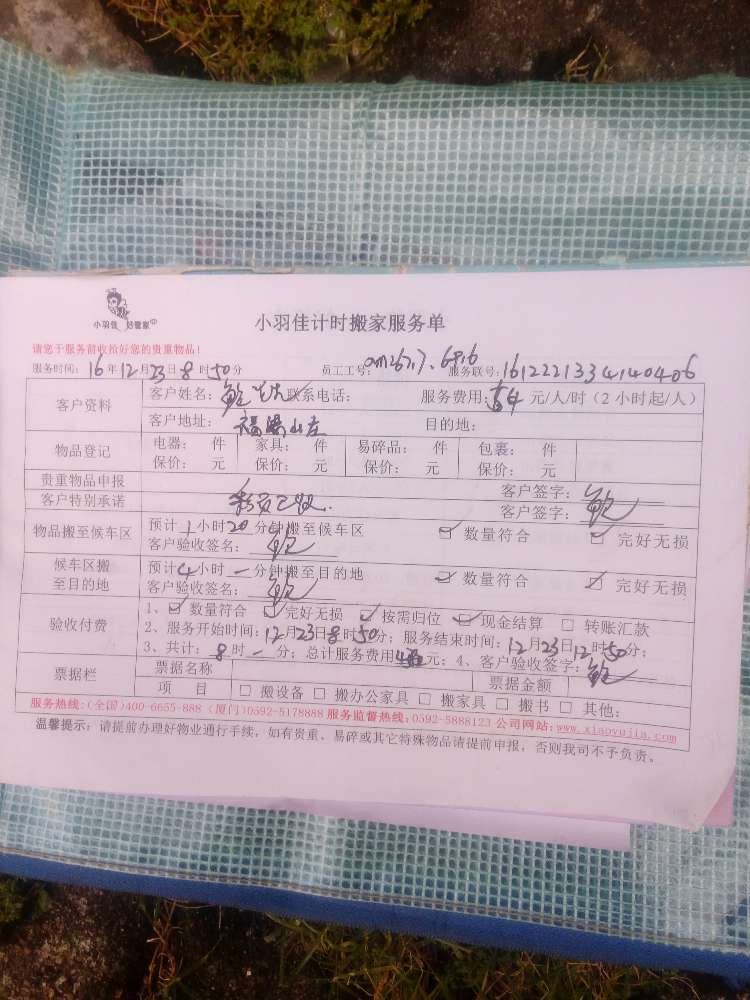 小羽佳 好管家
小羽佳计时搬家服务单
请您于服务前收拾好您的贵重物品！
服务时间：16年12月23日8时50分 员工工号： 服务联号：1612221334140406
客户资料 客户姓名：鲍 联系电话： 服务费用：54元/人/时（2小时起/人）
客户地址： 目的地：
物品登记 电器： 件 家具： 件 易碎品： 件 包裹： 件
保价： 元 保价： 元 保价： 元 保价： 元
贵重物品申报 客户签字：鲍
客户特别承诺 客户签字：鲍
物品搬至候车区 预计1小时20分钟搬至候车区 ☑数量符合 ☑完好无损
客户验收签名：鲍
候车区搬至目的地 预计4小时一分钟搬至目的地 ☑数量符合 ☑完好无损
客户验收签名：鲍
验收付费 1、☑数量符合 ☑完好无损 ☑按需归位 ☑现金结算 □转账汇款
2、服务开始时间：12月23日8时50分；服务结束时间：12月23日12时50分；
3、共计：8时一分；总计服务费用 元；4、客户验收签字：鲍
票据栏 票据名称 票据金额
项 目 □搬设备 □搬办公家具 □搬家具 □搬书 □其他：
服务热线：(全国)400-6655-888（厦门)0592-5178888 服务监督热线：0592-5888123 公司网站：www.xiaoyujia.com
温馨提示：请提前办理好物业通行手续，如有贵重、易碎或其它特殊物品请提前申报，否则我司不予负责。